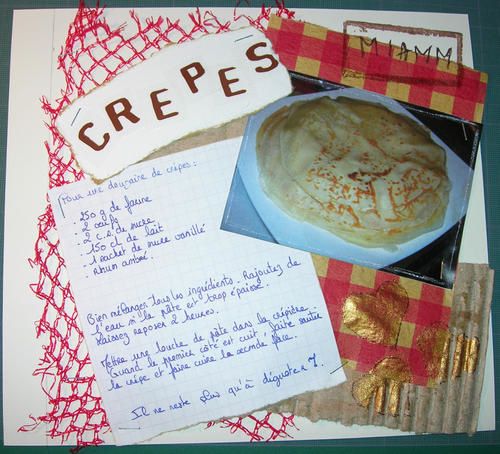 CREPES
MIAMM
Pour une douzaine de crêpes :
. 250 g de farine
. 2 œufs
. 2 c.s de sucre
. 150 cl de lait
. 1 sachet de sucre vanillé
. Rhum ambré.
Bien mélanger tous les ingrédients. Rajoutez de
l'eau si la pâte est trop épaisse.
Laissez reposer 2 heures.
Mettre une louche de pâte dans la crêpière.
Quand le premier côté est cuit, faire sauter
la crêpe et faire cuire la seconde face.
Il ne reste plus qu'à déguster